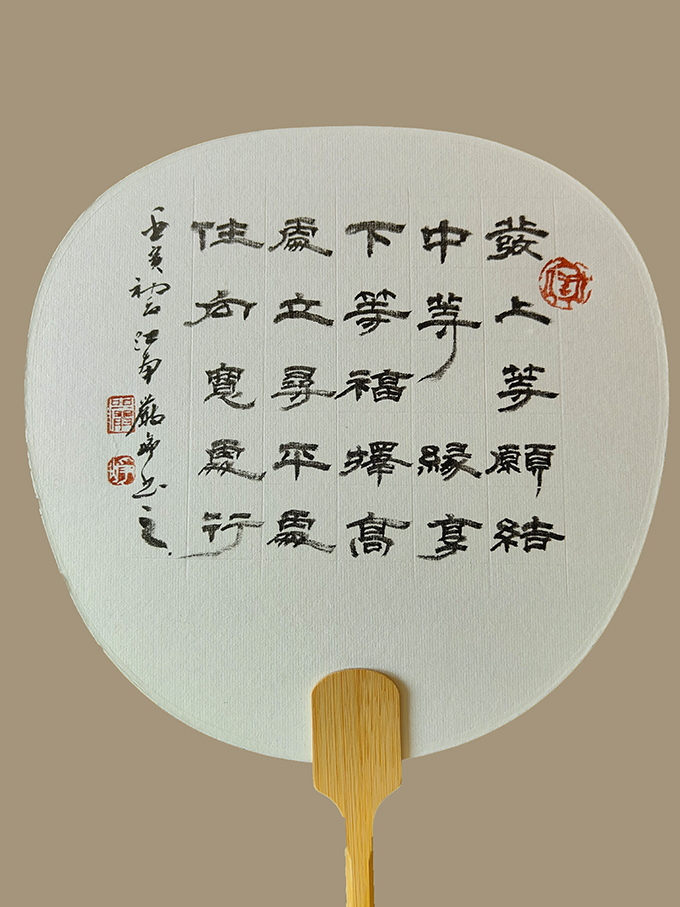 發上等願結
中等緣享
下等福擇高
處立尋平處
住向寬處行
江南嚴書之